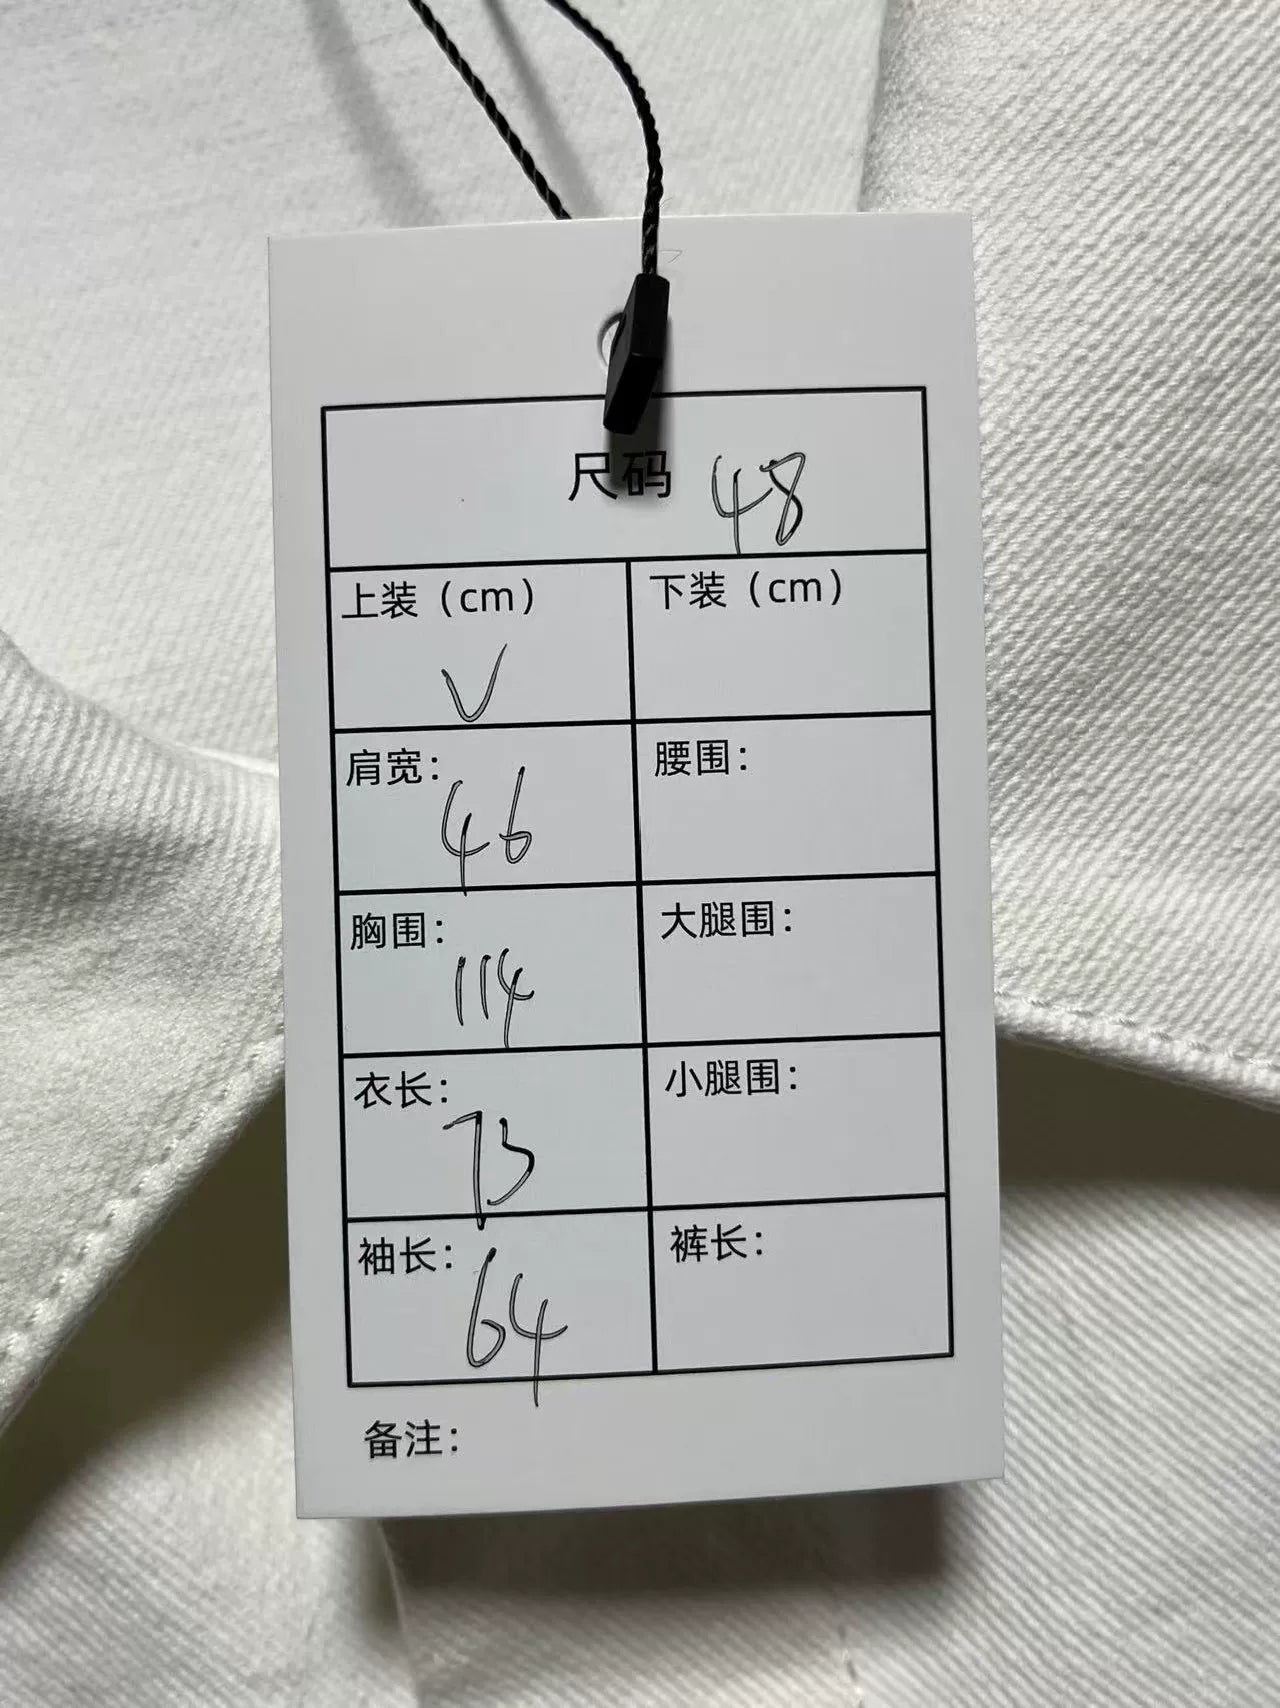 尺码 48
上装（cm） 下装（cm）
✓
肩宽： 腰围：
46
胸围： 大腿围：
114
衣长： 小腿围：
73
袖长： 裤长：
64
备注：